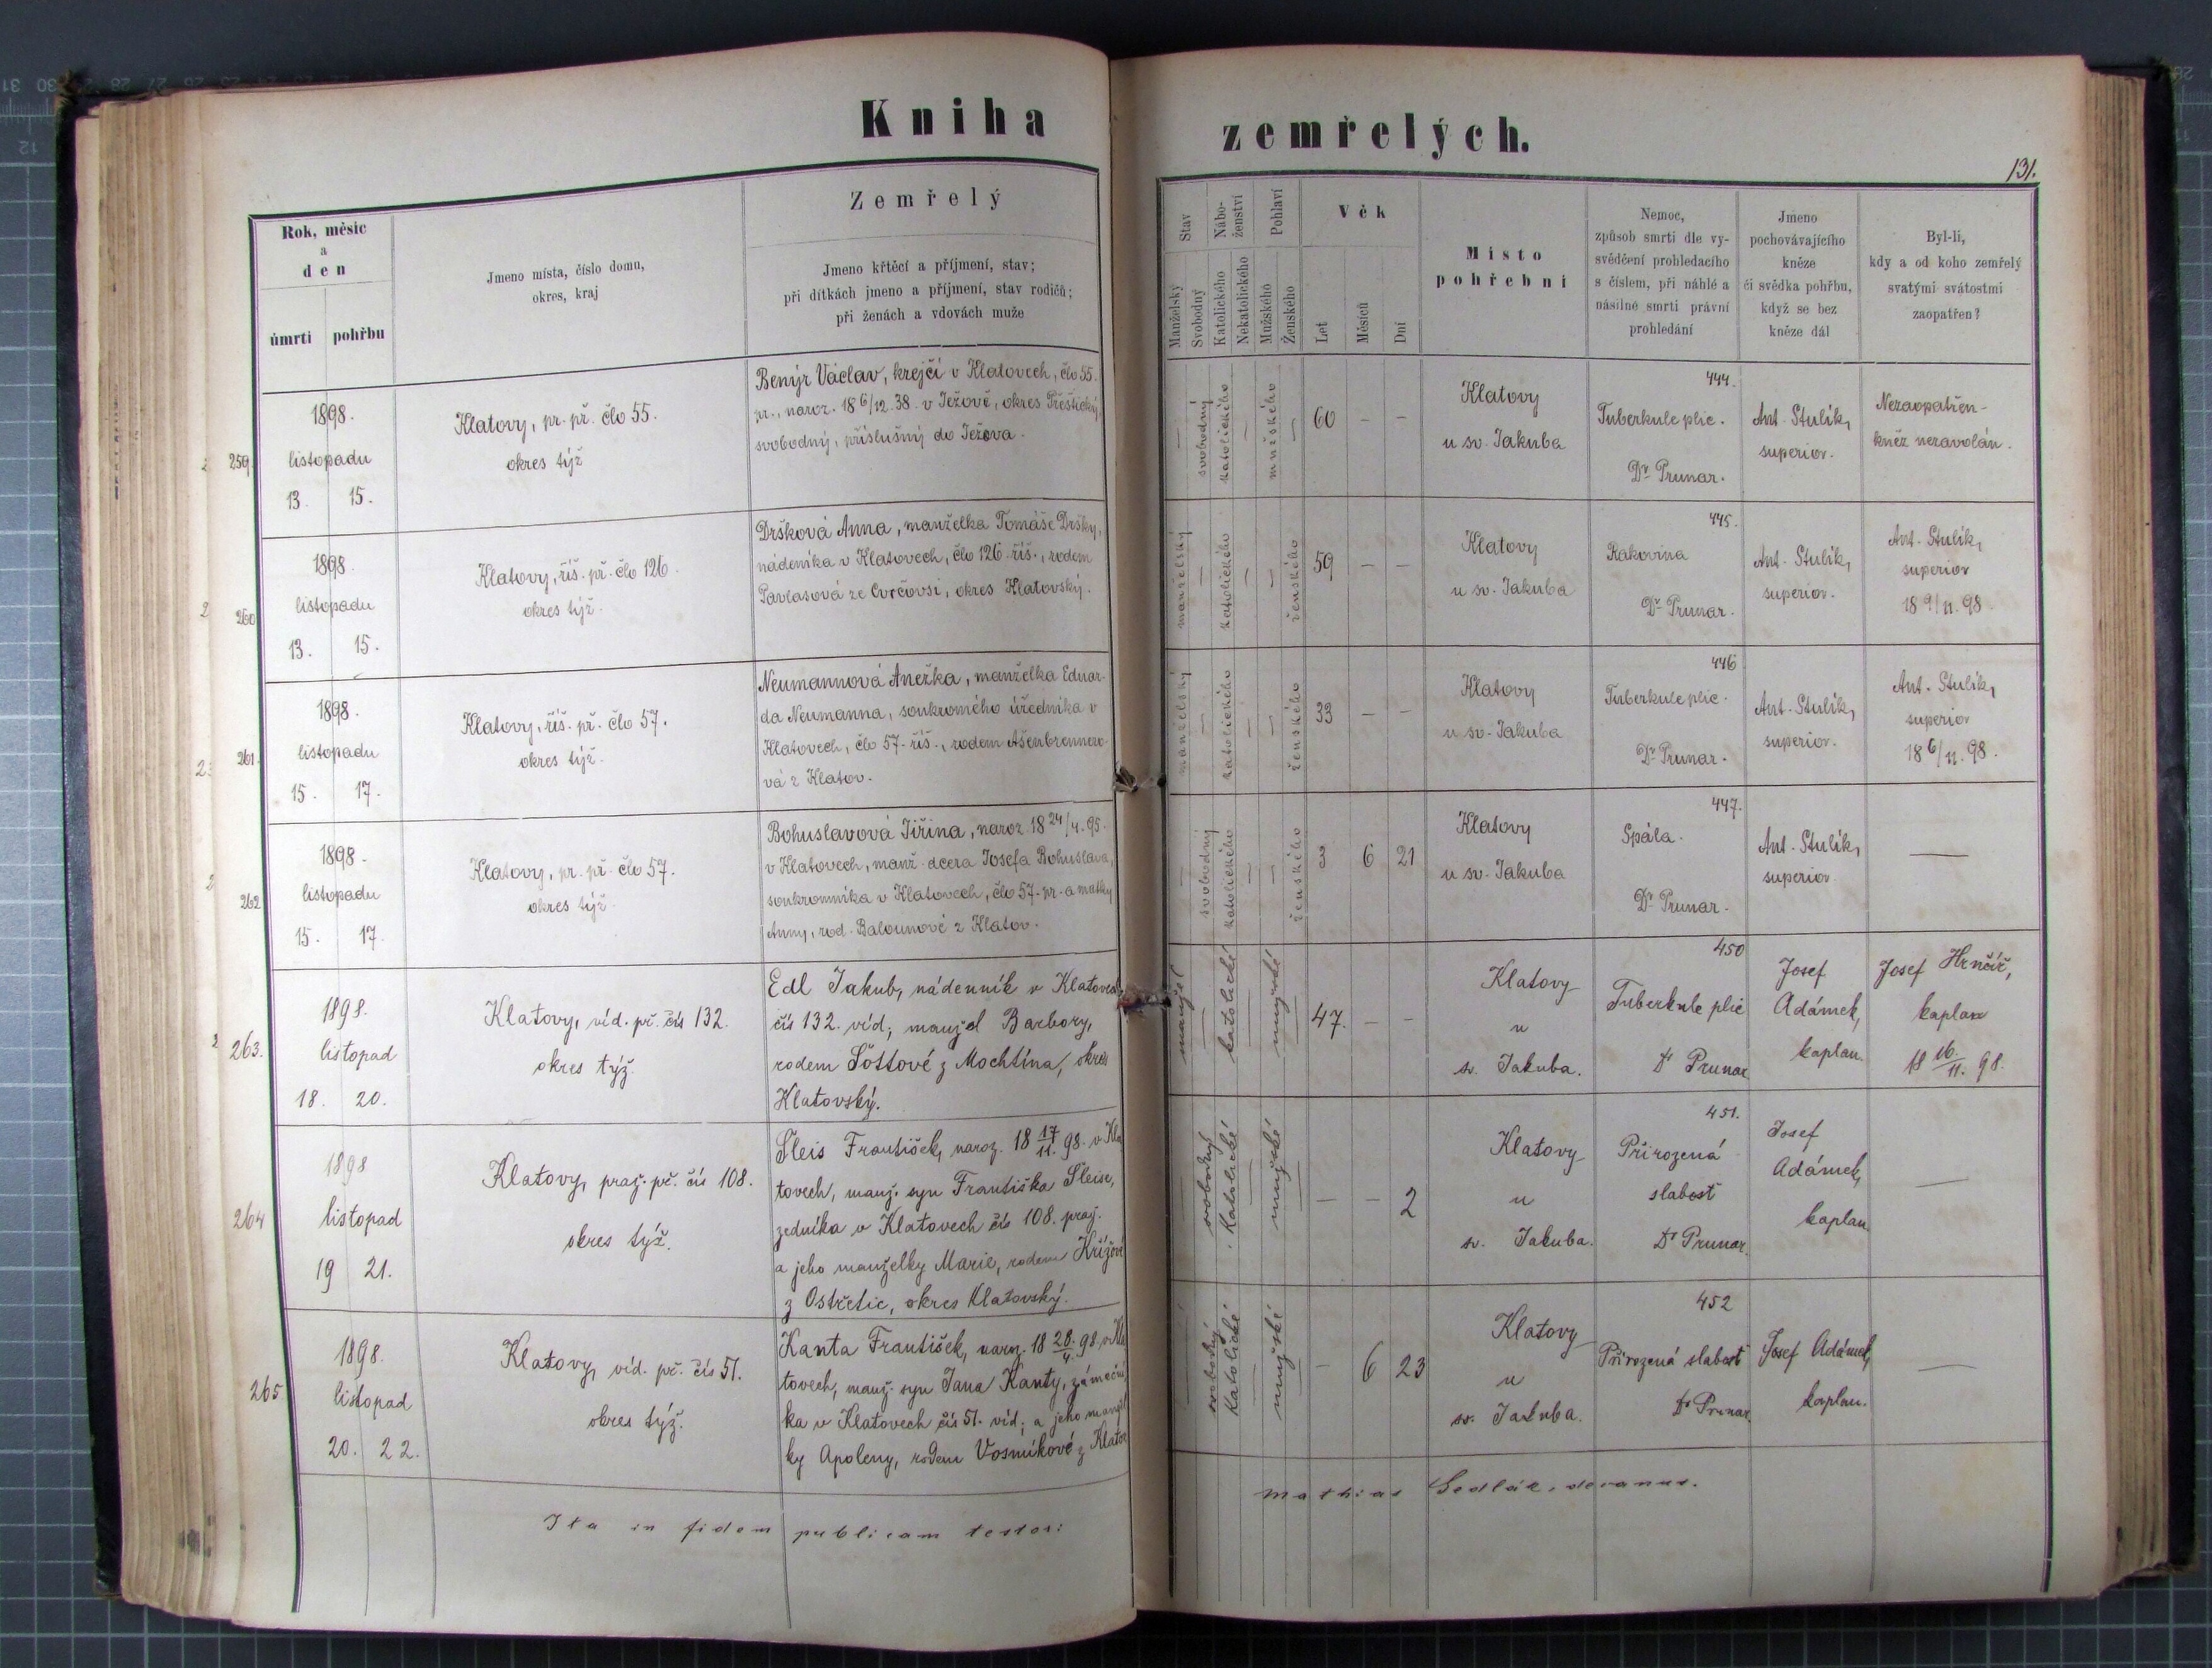 Kniha zemřelých.
131.
Rok, měsíc
a
den
úmrtí pohřbu
Jmeno místa, číslo domu,
okres, kraj
Zemřelý
Jmeno křtěcí a příjmení, stav;
při dítkách jmeno a příjmení, stav rodičů;
při ženách a vdovách muže
Stav
Manželský
Svobodný
Nábo-
ženství
Katolického
Nekatolického
Pohlaví
Mužského
Ženského
Věk
Let
Měsíců
Dní
Místo
pohřební
Nemoc,
způsob smrti dle vy-
svědčení prohledacího
s číslem, při náhlé a
násilné smrti právní
prohledání
Jmeno
pochovávajícího
kněze
či svědka pohřbu,
když se bez
kněze dál
Byl-li,
kdy a od koho zemřelý
svatými svátostmi
zaopatřen?
259.
1898.
listopadu
13. 15.
Klatovy, pr. př. člo 55.
okres týž
Benýr Václav, krejčí v Klatovech, člo 55.
pr., naroz. 18 6/12. 38. v Ježově, okres Přeštický,
svobodný, příslušný do Ježova.
— svobodný katolického — mužského —
60 — —
Klatovy
u sv. Jakuba
444.
Tuberkule plic.
Dr Prunar.
Ant. Stulík,
superior.
Nezaopatřen-
kněz nezavolán.
260
1898.
listopadu
13. 15.
Klatovy, říš. př. člo 126.
okres týž.
Dršková Anna, manželka Tomáše Dršky,
nádeníka v Klatovech, člo 126. říš., rodem
Pavlasová ze Cvrčovsi, okres Klatovský.
manželský — katolického — — ženského
59 — —
Klatovy
u sv. Jakuba
445.
Rakovina
Dr Prunar.
Ant. Stulík,
superior.
Ant. Stulík,
superior
18 9/11. 98.
261.
1898.
listopadu
15. 17.
Klatovy, říš. př. člo 57.
okres týž.
Neumannová Anežka, manželka Eduar-
da Neumanna, soukromého úředníka v
Klatovech, člo 57. říš., rodem Ašenbrennero-
vá z Klatov.
manželský — katolického — — ženského
33 — —
Klatovy
u sv. Jakuba
446
Tuberkule plic.
Dr Prunar.
Ant. Stulík,
superior.
Ant. Stulík,
superior
18 6/11. 98.
262
1898.
listopadu
15. 17.
Klatovy, pr. př. člo 57.
okres týž.
Bohuslavová Jiřina, naroz. 18 24/4. 95.
v Klatovech, manž. dcera Josefa Bohuslava,
soukromníka v Klatovech, člo 57. pr. a matky
Anny, rod. Balounové z Klatov.
— svobodný katolického — — ženského
3 6 21
Klatovy
u sv. Jakuba
447.
Spála.
Dr Prunar.
Ant. Stulík,
superior
—
263.
1898.
listopad
18. 20.
Klatovy, víd. př. čís 132.
okres týž.
Edl Jakub, nádenník v Klatovech
čís 132. víd, manžel Barbory,
rodem Šottové z Mochtína, okres
Klatovský.
manžel — katolické — mužské —
47. — —
Klatovy
u
sv. Jakuba.
450
Tuberkule plic
Dr Prunar
Josef
Adámek,
kaplan.
Josef Hrnčíř,
kaplan
18 16/11. 98.
264
1898
listopad
19 21.
Klatovy, praž. př. čís 108.
okres týž.
Šleis František, naroz. 18 17/11. 98. v Kla
tovech, manž. syn Františka Šleise,
zedníka v Klatovech čís 108. praž.
a jeho manželky Marie, rodem Křížové
z Ostřetic, okres Klatovský.
— svobodný Katolické — mužské —
— — 2
Klatovy
u
sv. Jakuba.
451.
Přirozená
slabost
Dr Prunar.
Josef
Adámek,
kaplan
—
265
1898.
listopad
20. 22.
Klatovy, víd. př. čís 51.
okres týž.
Kanta František, naroz. 18 28./4. 98. v Kla
tovech, manž. syn Jana Kanty, zámeční
ka v Klatovech čís 51. víd; a jeho manžel
ky Apoleny, rodem Vosmíkové z Klatov
— svobodný Katolické — mužské —
— 6 23
Klatovy
u
sv. Jakuba.
452
Přirozená slabost
Dr Prunar.
Josef Adámek,
kaplan.
—
Ita in fidem publicam testor: Mathias Sedlák, decanus.